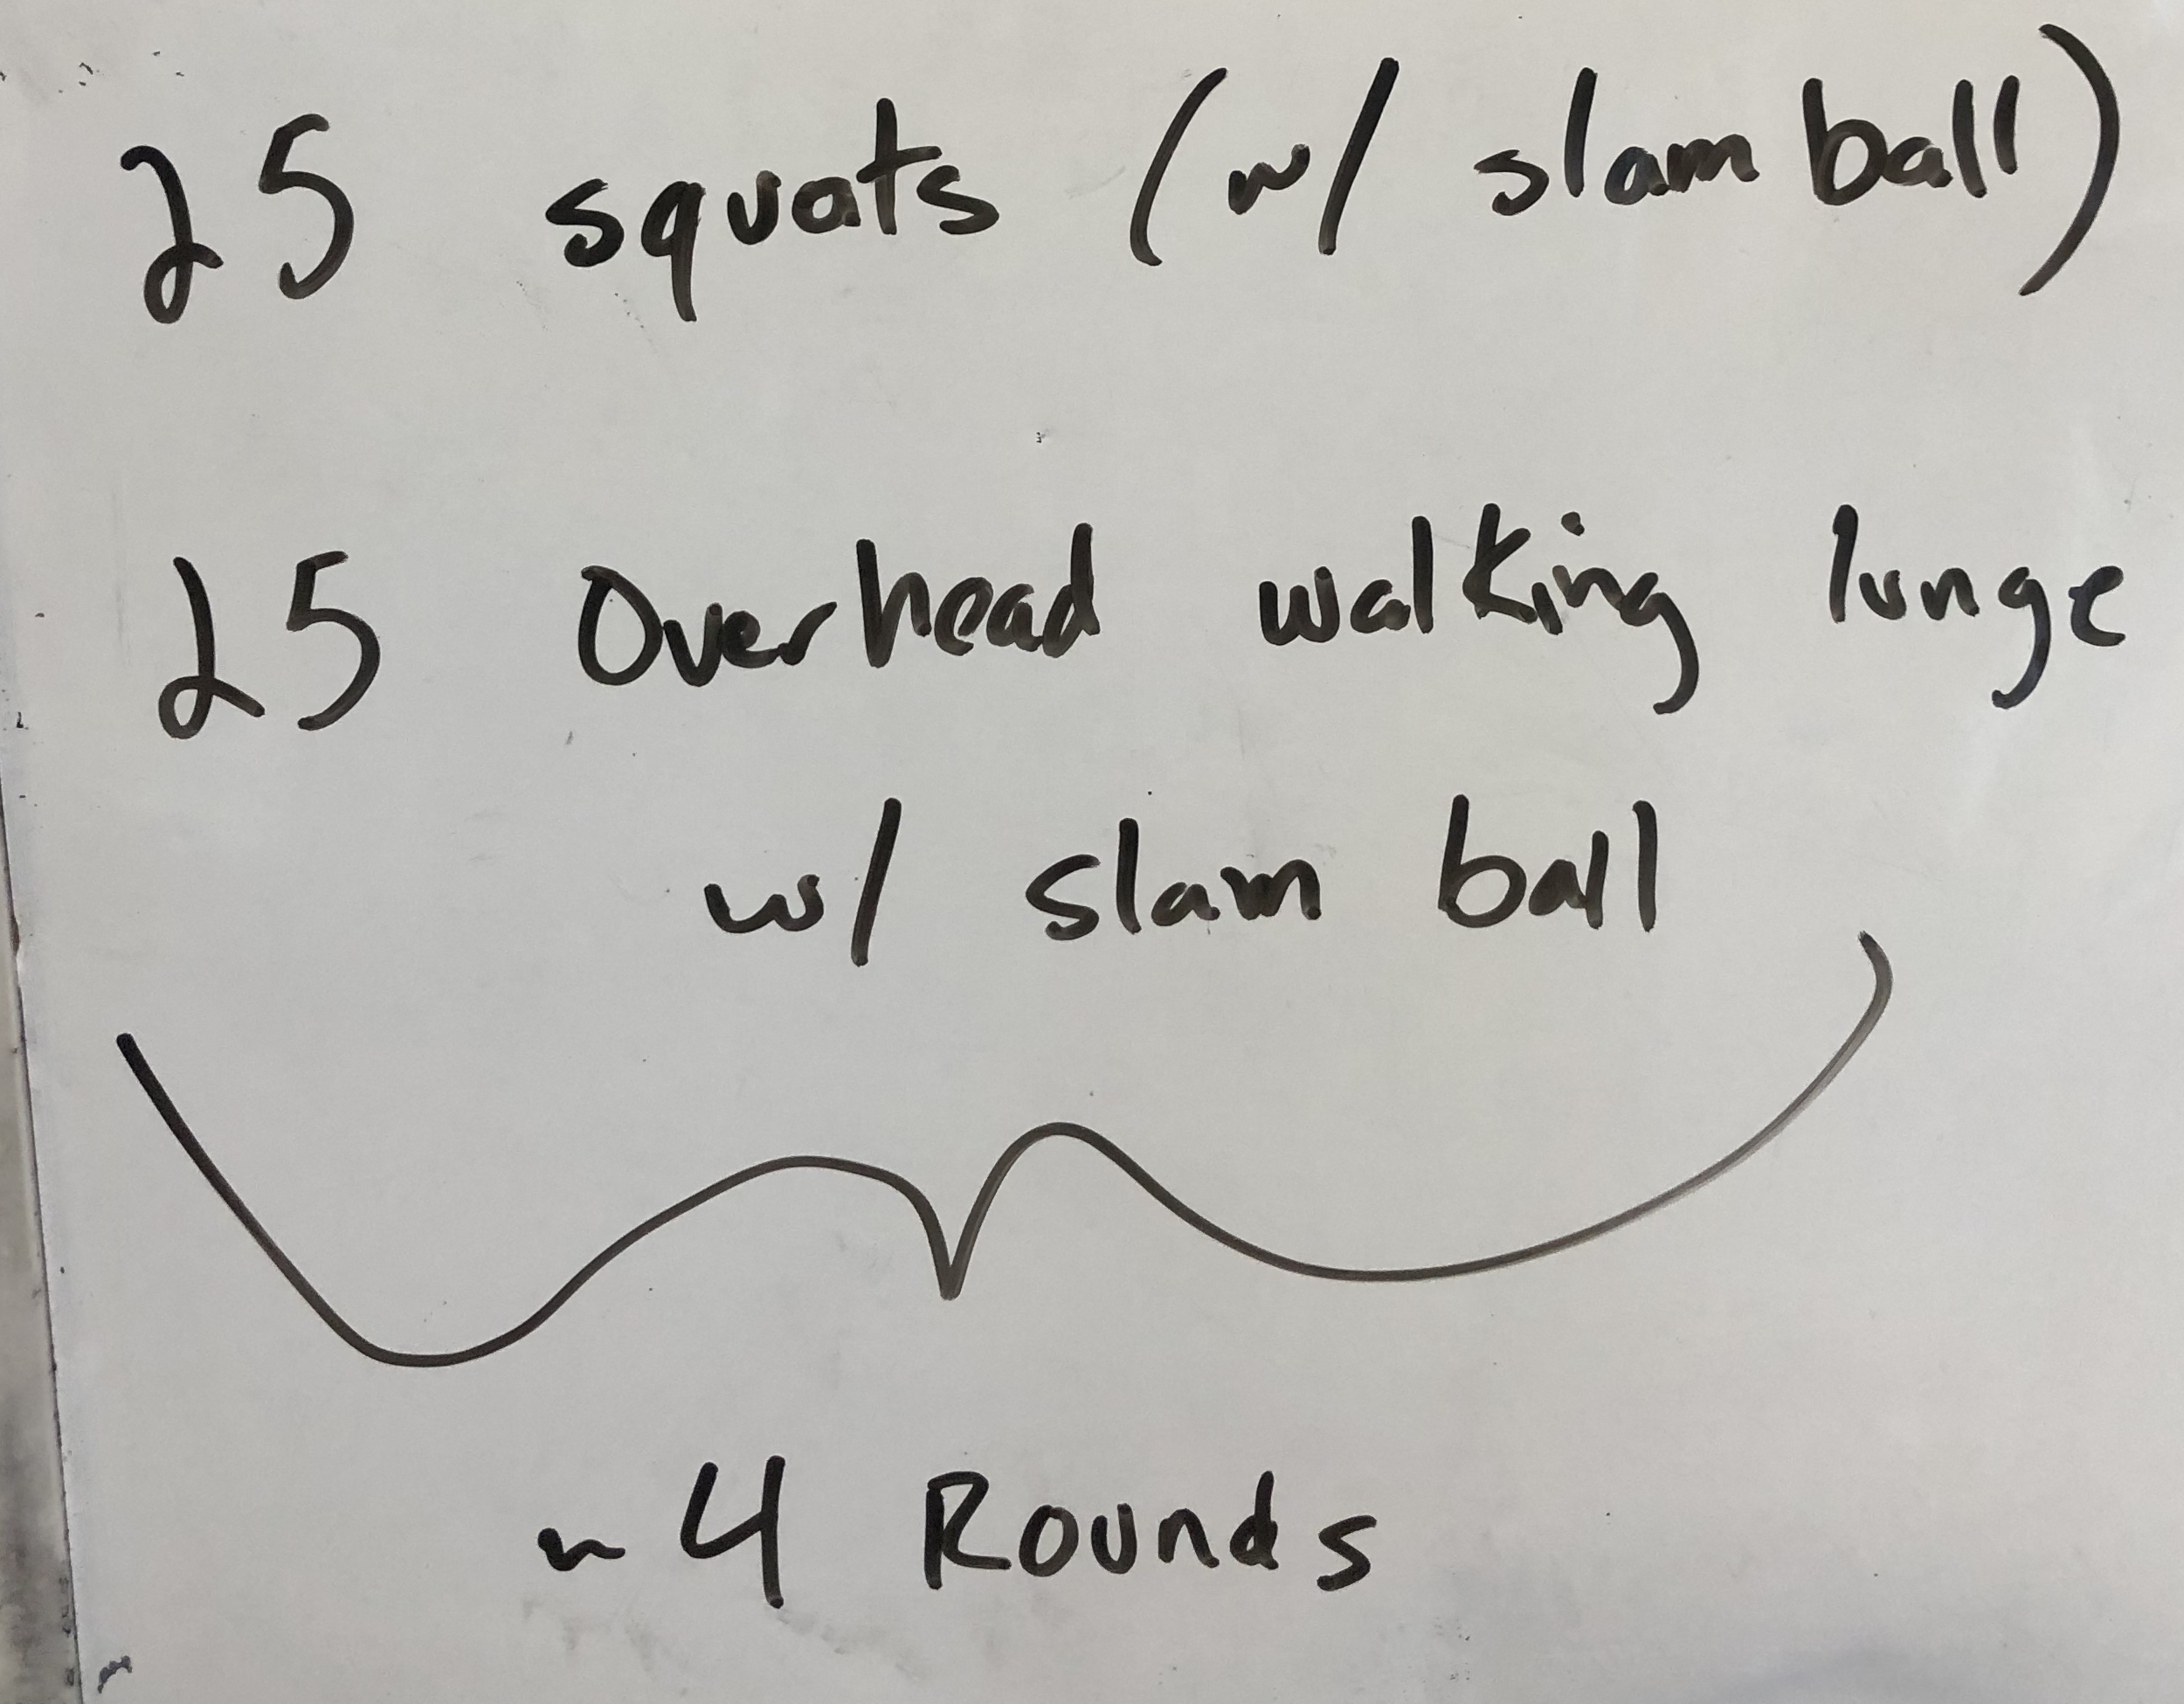 25 squats (w/ slam ball)
25 Overhead walking lunge
w/ slam ball
~ 4 Rounds